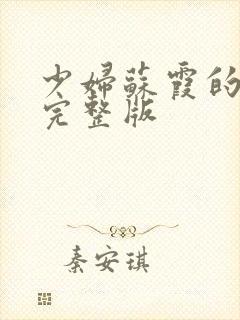 少婦蘇霞的
完整版
秦安琪